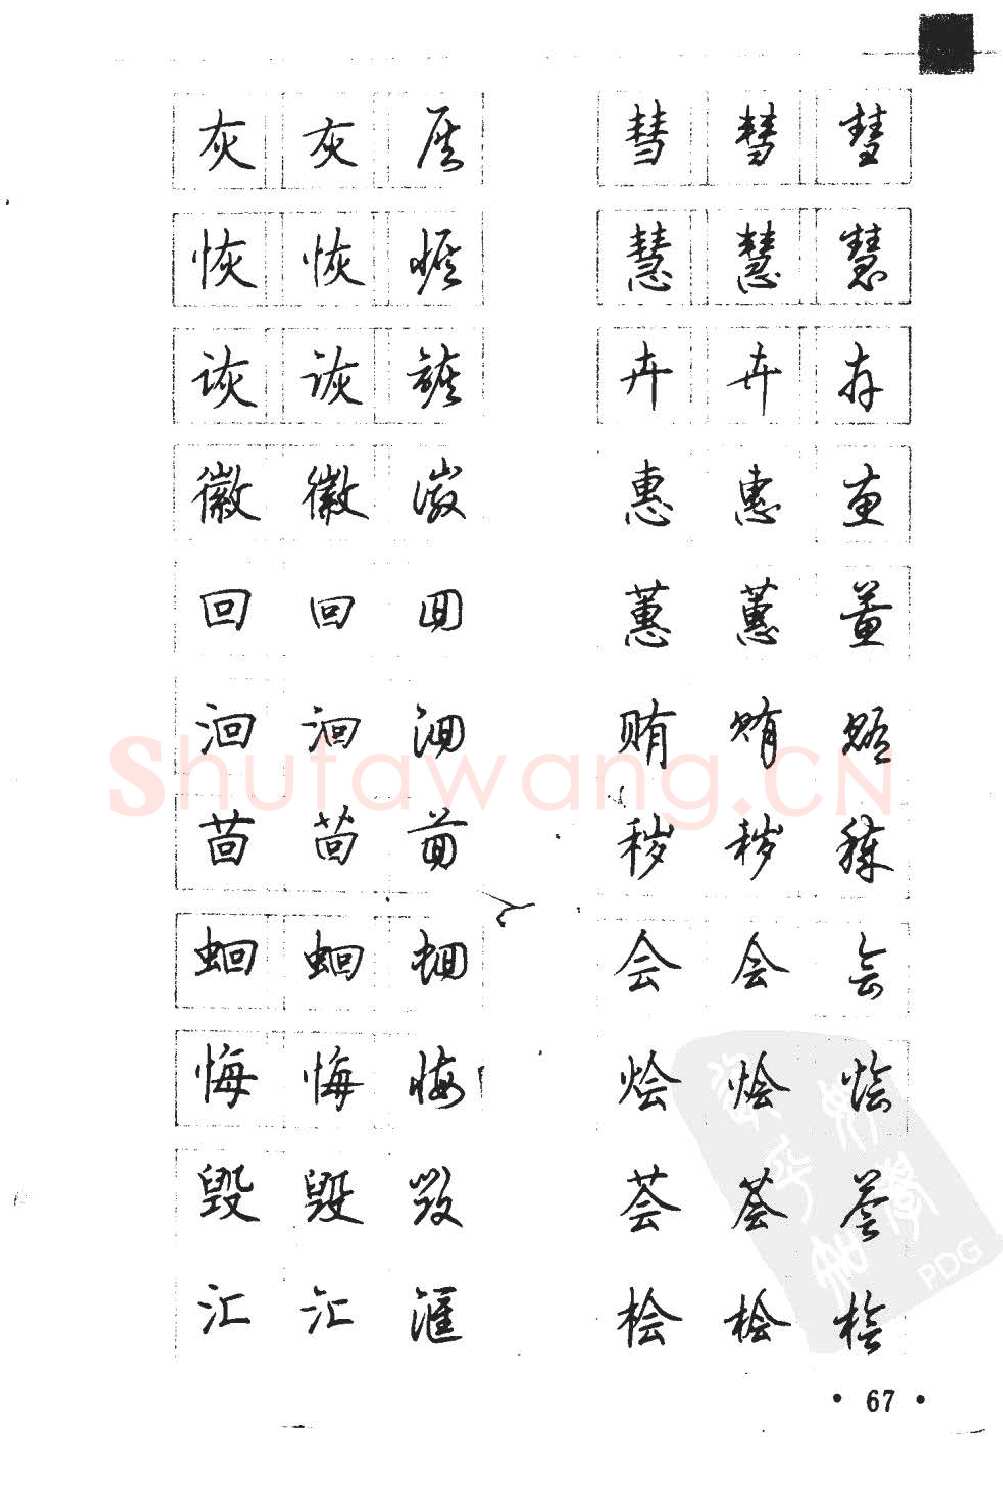 灰 灰 灰 彗 彗 彗
恢 恢 恢 慧 慧 慧
诙 诙 诙 卉 卉 卉
徽 徽 徽 惠 惠 惠
回 回 回 蕙 蕙 蕙
洄 洄 洄 贿 贿 贿
茴 茴 茴 秽 秽 秽
蛔 蛔 蛔 会 会 会
悔 悔 悔 烩 烩 烩
毁 毁 毁 荟 荟 荟
汇 汇 匯 桧 桧 桧
Shufawang.CN
PDG
• 67 •